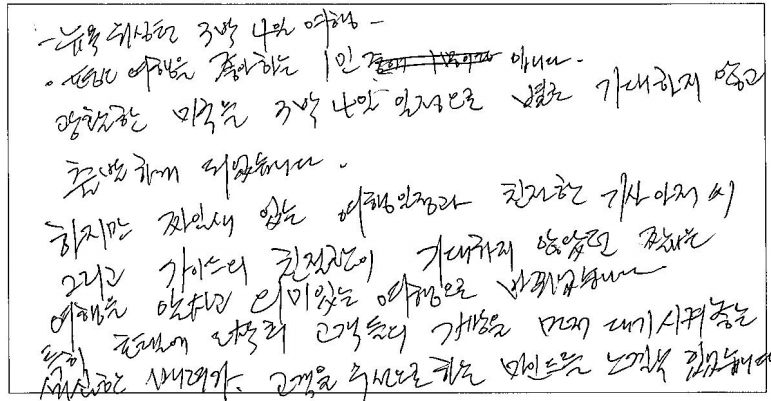 - 뉴욕 워싱턴 3박 4일 여행 -
· 평소 여행을 좋아하는 1인 입니다.
광활한 미국을 3박 4일 일정으로 별로 기대하지 않고
출발하게 되었습니다.
하지만 짜임새 있는 여행일정과 친절한 기사 아저씨
그리고 가이드의 친절함이 기대하지 않았던 짧은
여행을 알차고 의미있는 여행으로 바뀌었습니다
특히 호텔에 도착해 고객들의 가방을 먼저 대기시켜놓는
세심한 배려가. 고객을 우선으로 하는 마인드를 느낄수 있었습니다